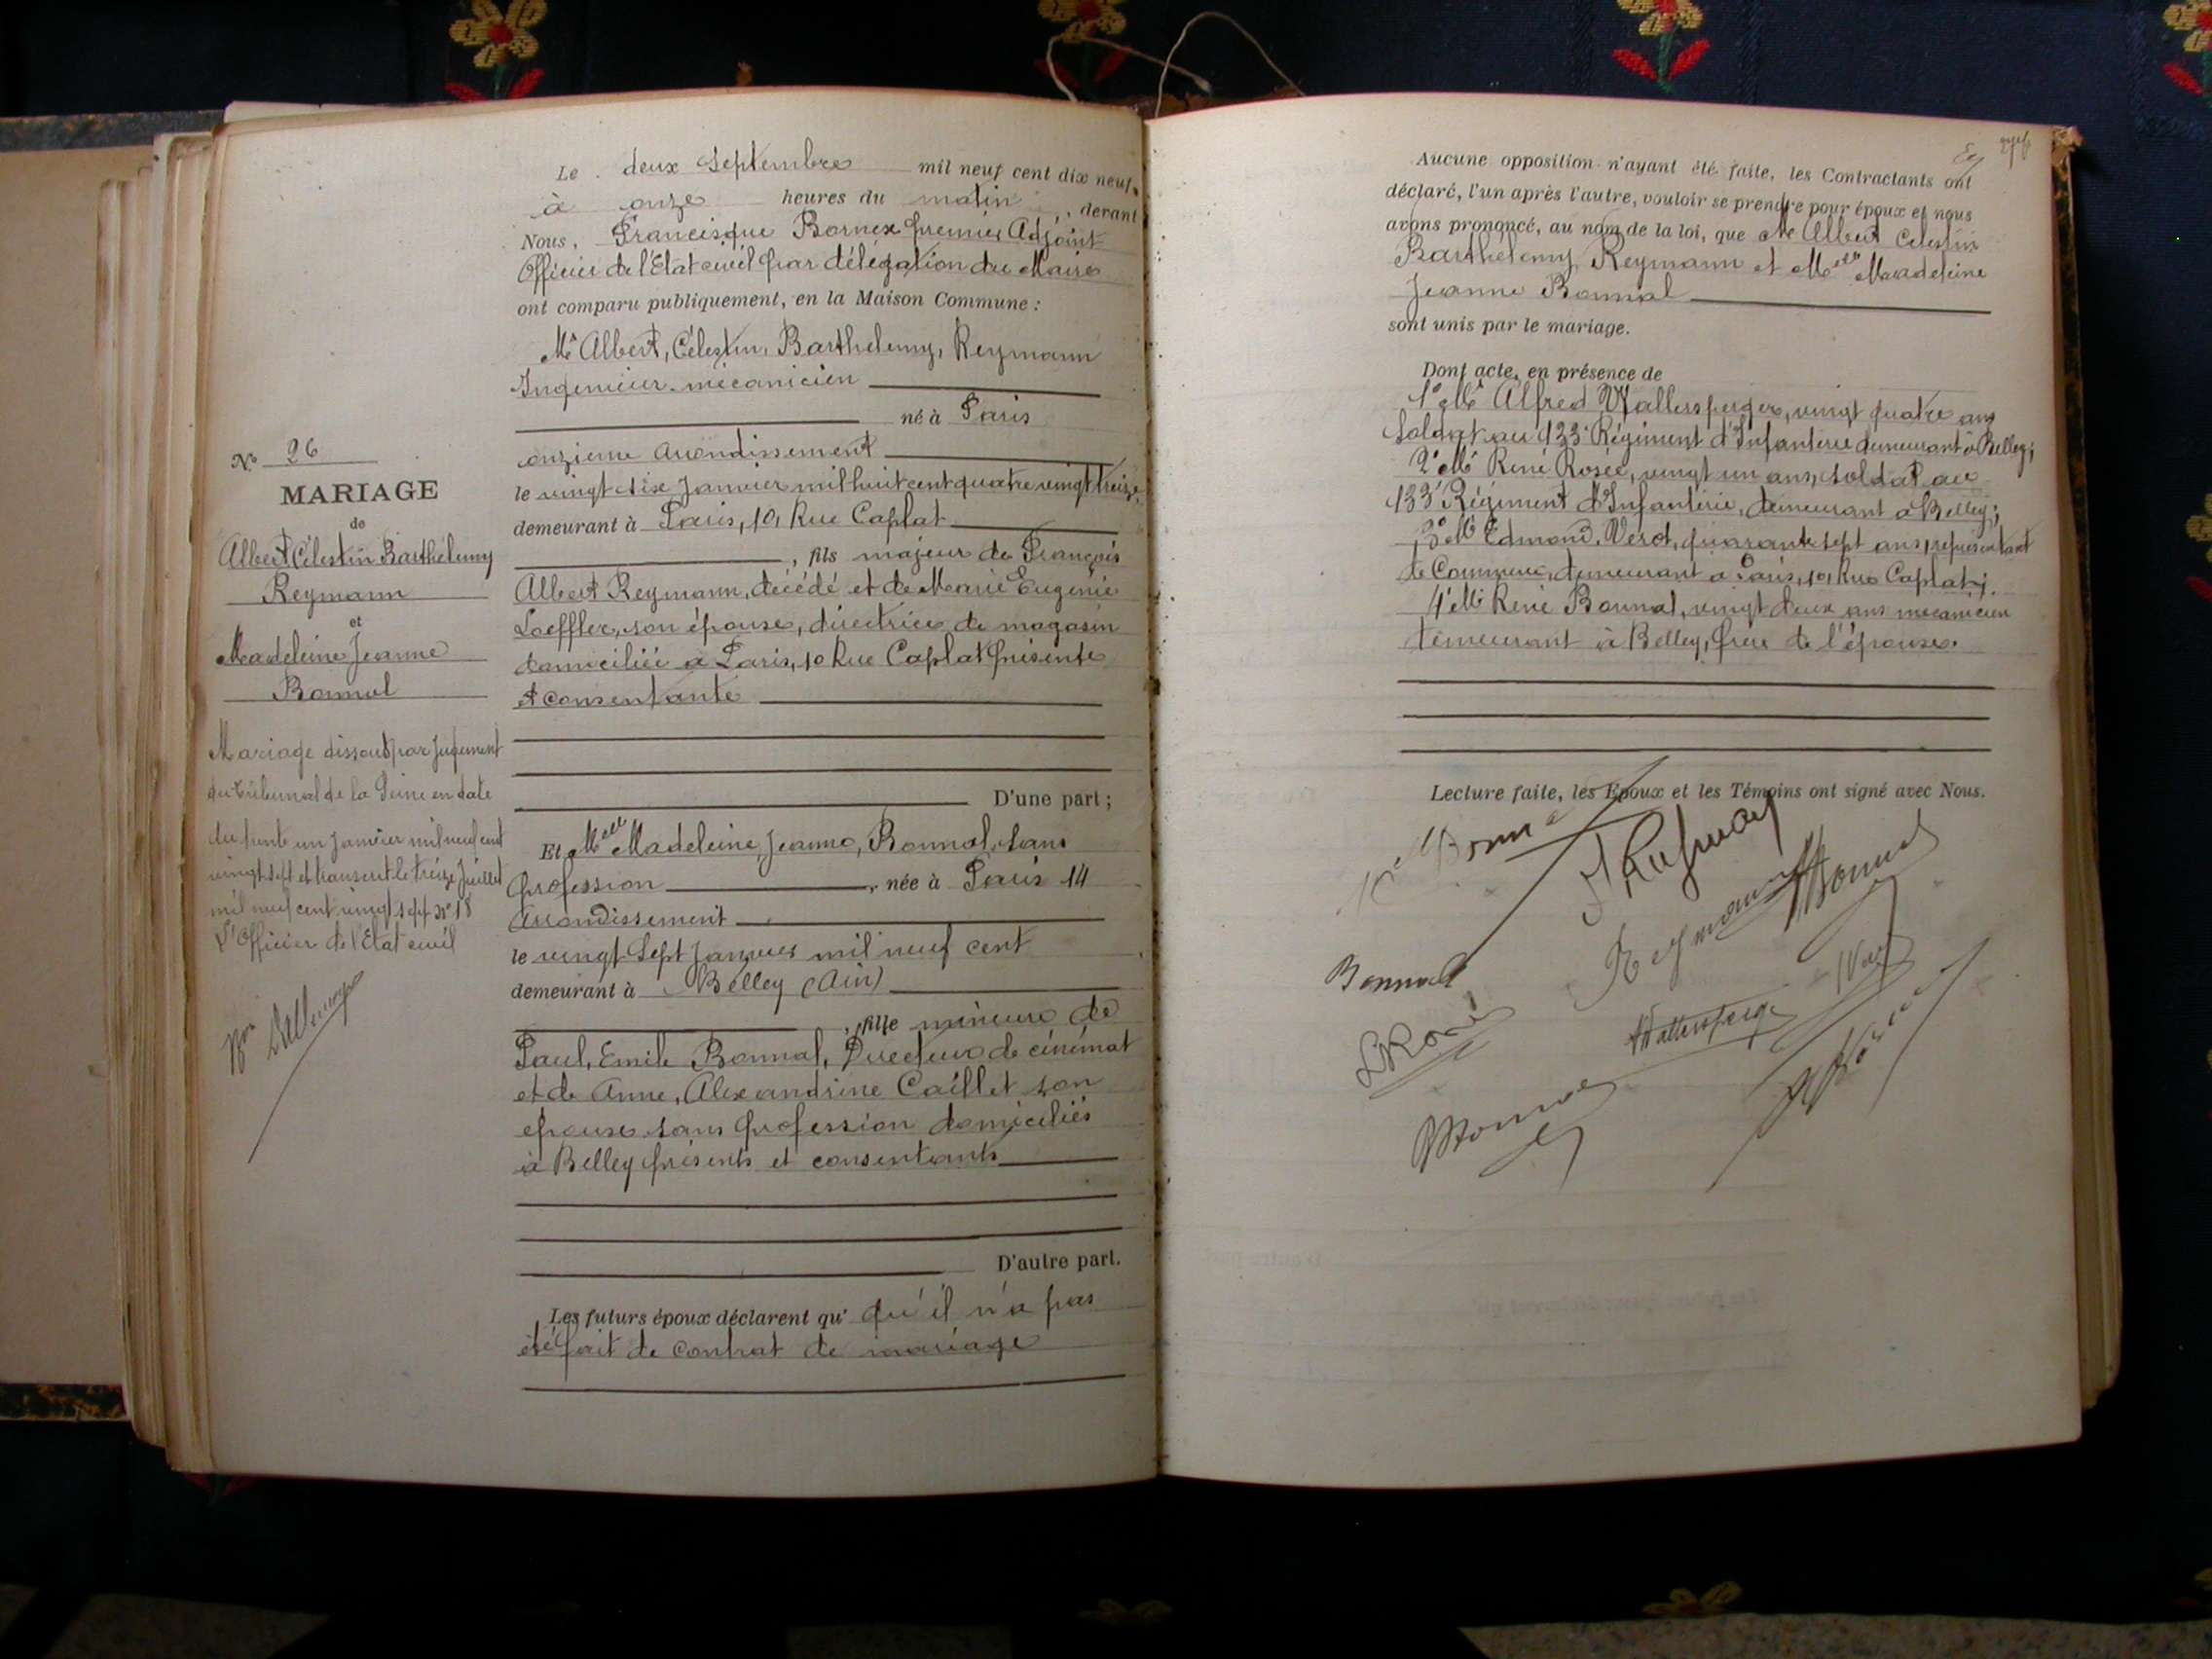 N° 26
MARIAGE
de
Albert Célestin Barthélemy
Reymann
et
Madeleine Jeanne
Bonnal
Mariage dissout par jugement
du tribunal de la Seine en date
du trente un janvier mil neuf cent
vingt sept et transcrit le treize Juillet
mil neuf cent vingt sept N° 18
L'Officier de l'Etat civil
Le deux Septembre mil neuf cent dix neuf,
à onze heures du matin, devant
Nous, Francisque Bornex premier Adjoint
Officier de l'Etat civil par délégation du Maire
ont comparu publiquement, en la Maison Commune :
Mr Albert, Célestin, Barthélemy, Reymann
Ingénieur-mécanicien
né à Paris
onzième arrondissement
le vingt six Janvier mil huit cent quatre vingt treize
demeurant à Paris, 10, Rue Caplat
, fils majeur de François
Albert Reymann, décédé et de Marie Eugénie
Loeffler, son épouse, directrice de magasin
domiciliée à Paris, 10 Rue Caplat présente
et consentante
D'une part ;
Et Melle Madeleine, Jeanne, Bonnal, sans
profession, née à Paris 14
Arrondissement
le vingt-sept Janvier mil neuf cent
demeurant à Belley (Ain)
, fille mineure de
Paul, Emile Bonnal, Directeur de cinémat
et de Anne, Alexandrine Caillet son
épouse sans profession domiciliés
à Belley présents et consentants
D'autre part.
Les futurs époux déclarent qu' qu'il n'a pas
été fait de contrat de mariage
Aucune opposition n'ayant été faite, les Contractants ont
déclaré, l'un après l'autre, vouloir se prendre pour époux et nous
avons prononcé, au nom de la loi, que Mr Albert Célestin
Barthélemy Reymann et Melle Madeleine
Jeanne Bonnal
sont unis par le mariage.
Dont acte, en présence de
1° Mr Alfred Wallersperger, vingt quatre ans
soldat au 133e Régiment d'Infanterie demeurant à Belley;
2° Mr René Rosée, vingt un ans, soldat au
133e Régiment d'Infanterie, demeurant à Belley;
3° Mr Edmond, Verot, quarante sept ans, représentant
de Commerce, demeurant à Paris, 10, Rue Caplat;
4° Mr René Bonnal, vingt deux ans mécanicien
demeurant à Belley, frère de l'épouse.
Lecture faite, les Epoux et les Témoins ont signé avec Nous.
Reymann
Bonnal
Wallersperger